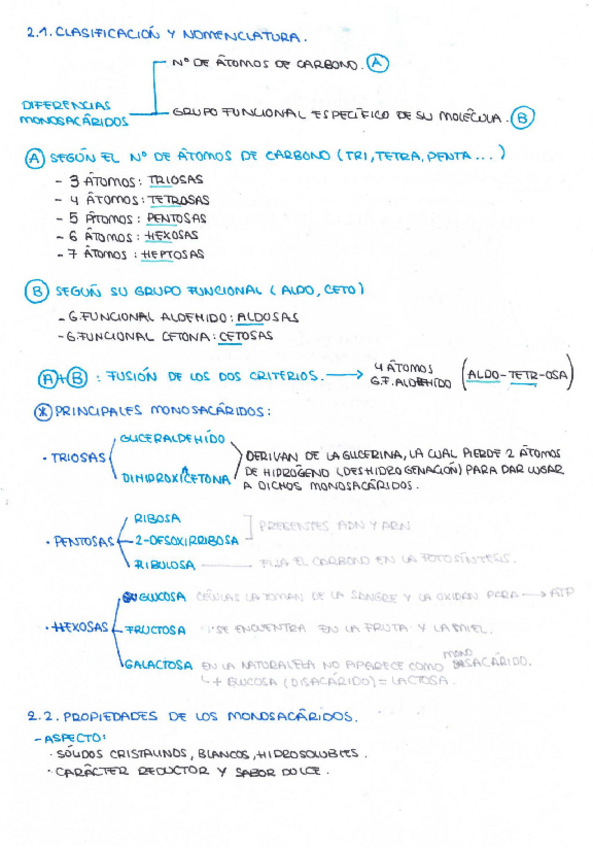 2.1. CLASIFICACIÓN Y NOMENCLATURA.
Nº DE ÁTOMOS DE CARBONO. (A)
DIFERENCIAS
MONOSACÁRIDOS
GRUPO FUNCIONAL ESPECÍFICO DE SU MOLÉCULA. (B)
(A) SEGÚN EL Nº DE ÁTOMOS DE CARBONO (TRI, TETRA, PENTA...)
- 3 ÁTOMOS: TRIOSAS
- 4 ÁTOMOS: TETROSAS
- 5 ÁTOMOS: PENTOSAS
- 6 ÁTOMOS: HEXOSAS
- 7 ÁTOMOS: HEPTOSAS
(B) SEGÚN SU GRUPO FUNCIONAL (ALDO, CETO)
- G. FUNCIONAL ALDEHIDO: ALDOSAS
- G. FUNCIONAL CETONA: CETOSAS
(A)+(B): FUSIÓN DE LOS DOS CRITERIOS. → 4 ÁTOMOS
G.F. ALDEHÍDO (ALDO-TETR-OSA)
* PRINCIPALES MONOSACÁRIDOS:
· TRIOSAS
GLICERALDEHÍDO
DIHIDROXIACETONA
DERIVAN DE LA GLICERINA, LA CUAL PIERDE 2 ÁTOMOS
DE HIDRÓGENO (DESHIDROGENACIÓN) PARA DAR LUGAR
A DICHOS MONOSACÁRIDOS.
· PENTOSAS
RIBOSA
2-DESOXIRRIBOSA
PRESENTES ADN Y ARN
RIBULOSA — FIJA EL CARBONO EN LA FOTOSÍNTESIS.
· HEXOSAS
GLUCOSA CÉLULAS LA TOMAN DE LA SANGRE Y LA OXIDAN PARA → ATP
FRUCTOSA SE ENCUENTRA EN LA FRUTA Y LA MIEL.
GALACTOSA EN LA NATURALEZA NO APARECE COMO MONOSACÁRIDO.
↳ + GLUCOSA (DISACÁRIDO) = LACTOSA.
2.2. PROPIEDADES DE LOS MONOSACÁRIDOS.
- ASPECTO:
· SÓLIDOS CRISTALINOS, BLANCOS, HIDROSOLUBLES.
· CARÁCTER REDUCTOR Y SABOR DULCE.